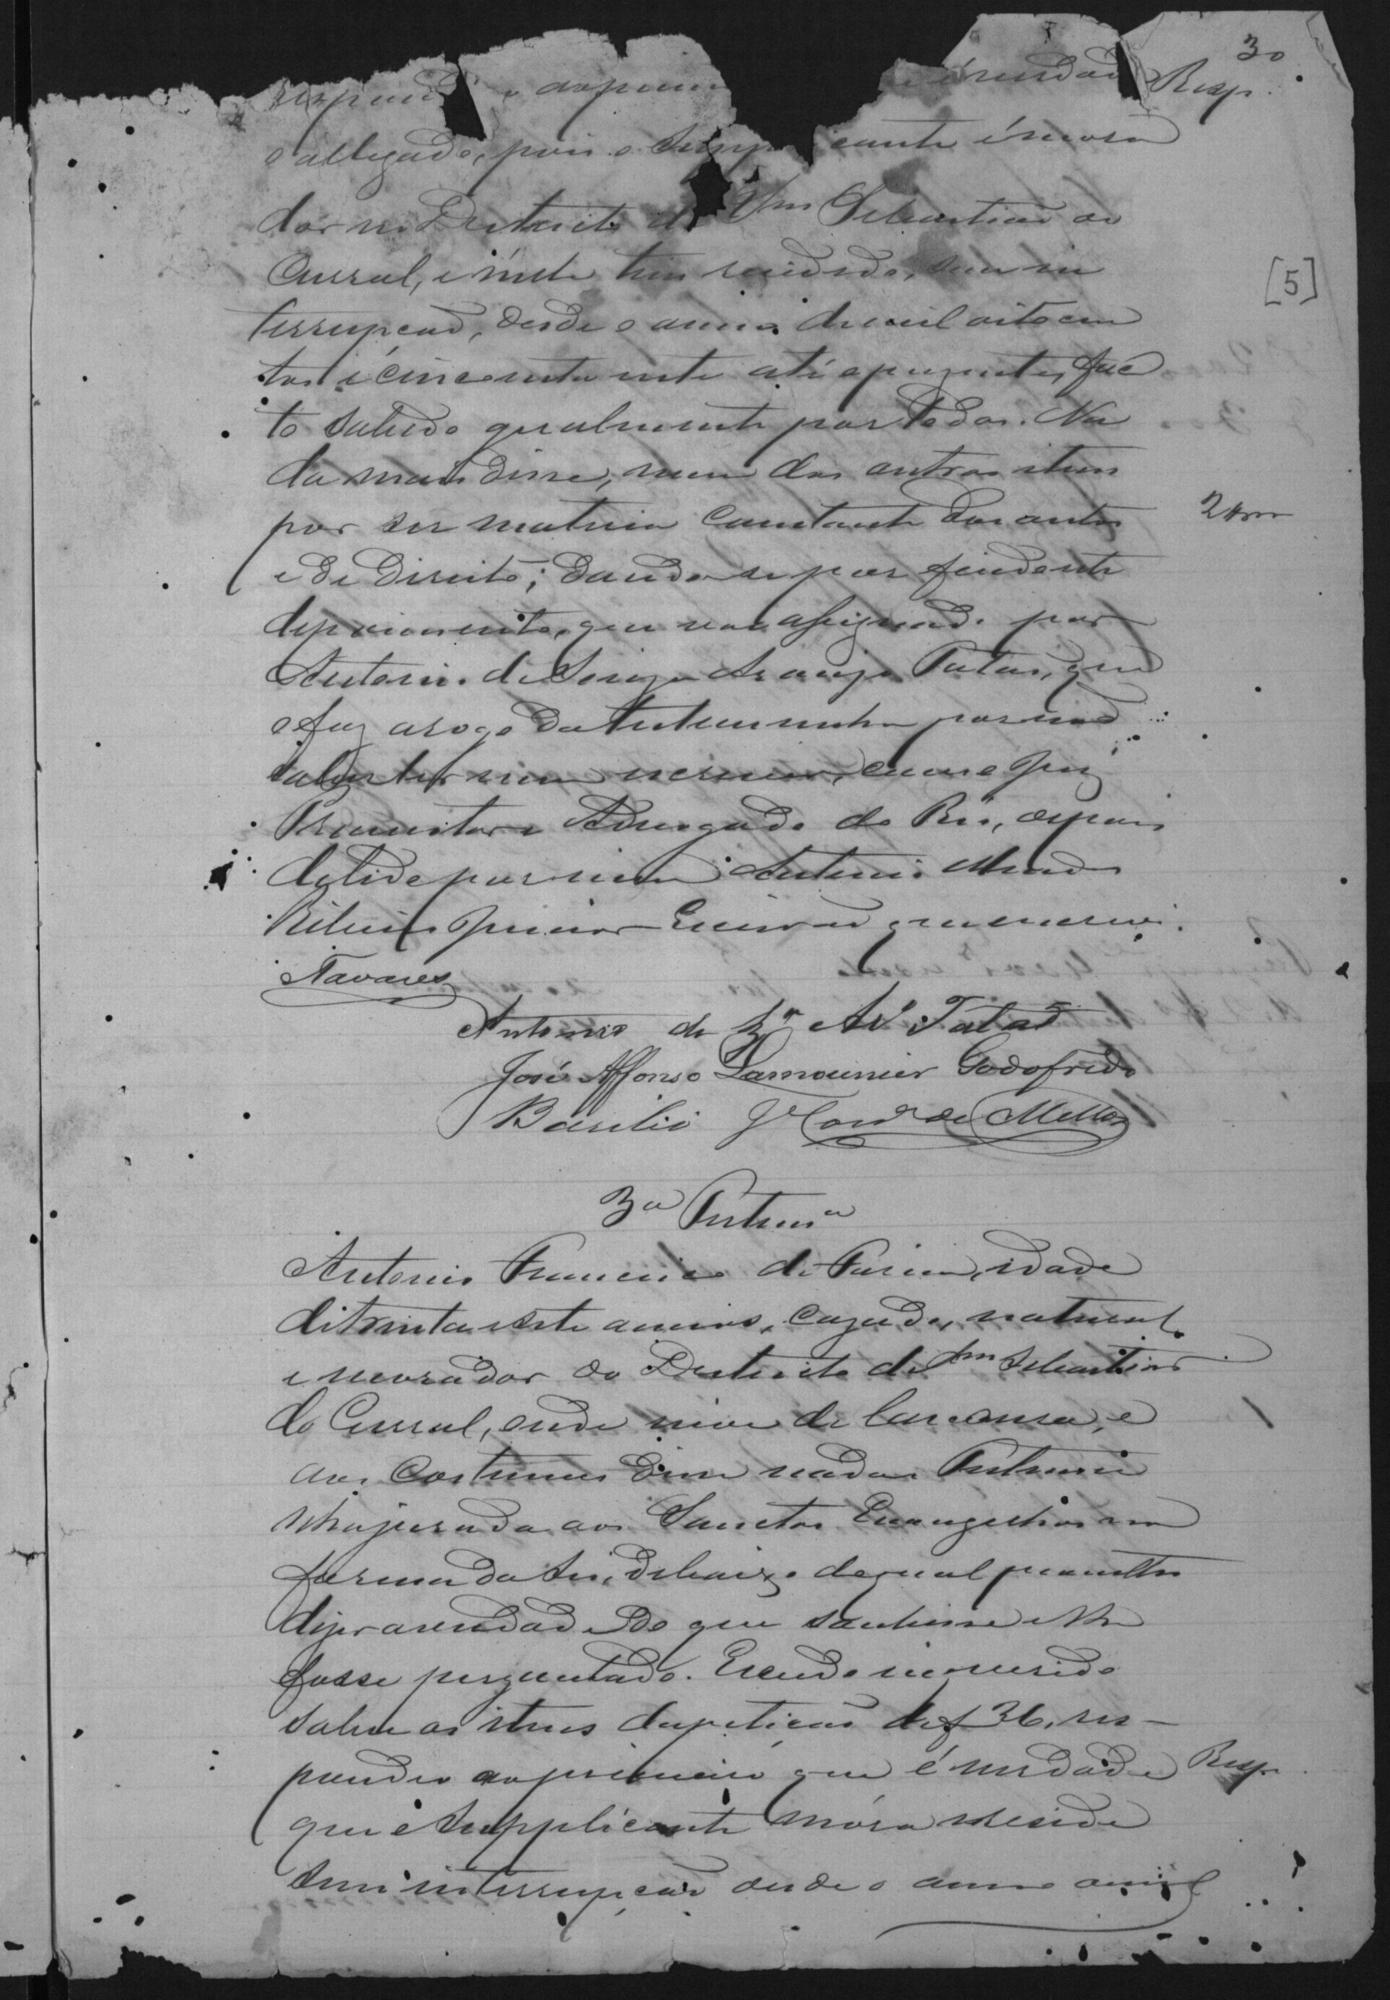 30
respond ao é verdade Resp.
o allegado, pois o Supplicante é mora
dor no Districto de Sam Sebastiao do
Curral, e n'este tem residido, sem in
terrupçaõ, desde o anno de mil oito cen
[5]
tos e cincoenta e sete até apresente, fac
to sabido geralmente por todos. Na
da mais disse, nem dos outros itens
por ser materia constante dos autos
2
e de Direito; dando se por findo este
depoimento, que vae assignado por
Antonio de Souza Araujo Tataõ, que
o faz arogo da testemunha por naõ
saber ler nem escrever, com o Juiz
Promotor e Advogado do Réo, depois
de lido por mim Antonio
Ribeiro Junior Escrivaõ que escrevi.
Tavares
Antonio de Sz.ª Ar.º Tataõ
José Affonso Lamounier Godofredo
Basilio de Mello
3ª Testemª
Antonio Francisco de Faria, idade
de trinta e sete annos, cazado, natural
e morador do Districto de Sam Sebastiaõ
do Curral, onde vive de lavoura, e
aos costumes disse nada. Testemu
nha jurada aos Sanctos Evangelhos na
forma da Lei, debaixo do qual prometteo
dizer a verdade do que soubesse e lhe
fosse perguntado. E sendo inquerido
sobre os itens da petiçaõ de f 36, res-
pondeo ao primeiro que é verdade Resp.
que o Supplicante móra e reside
sem interrupçaõ desde o anno de mil